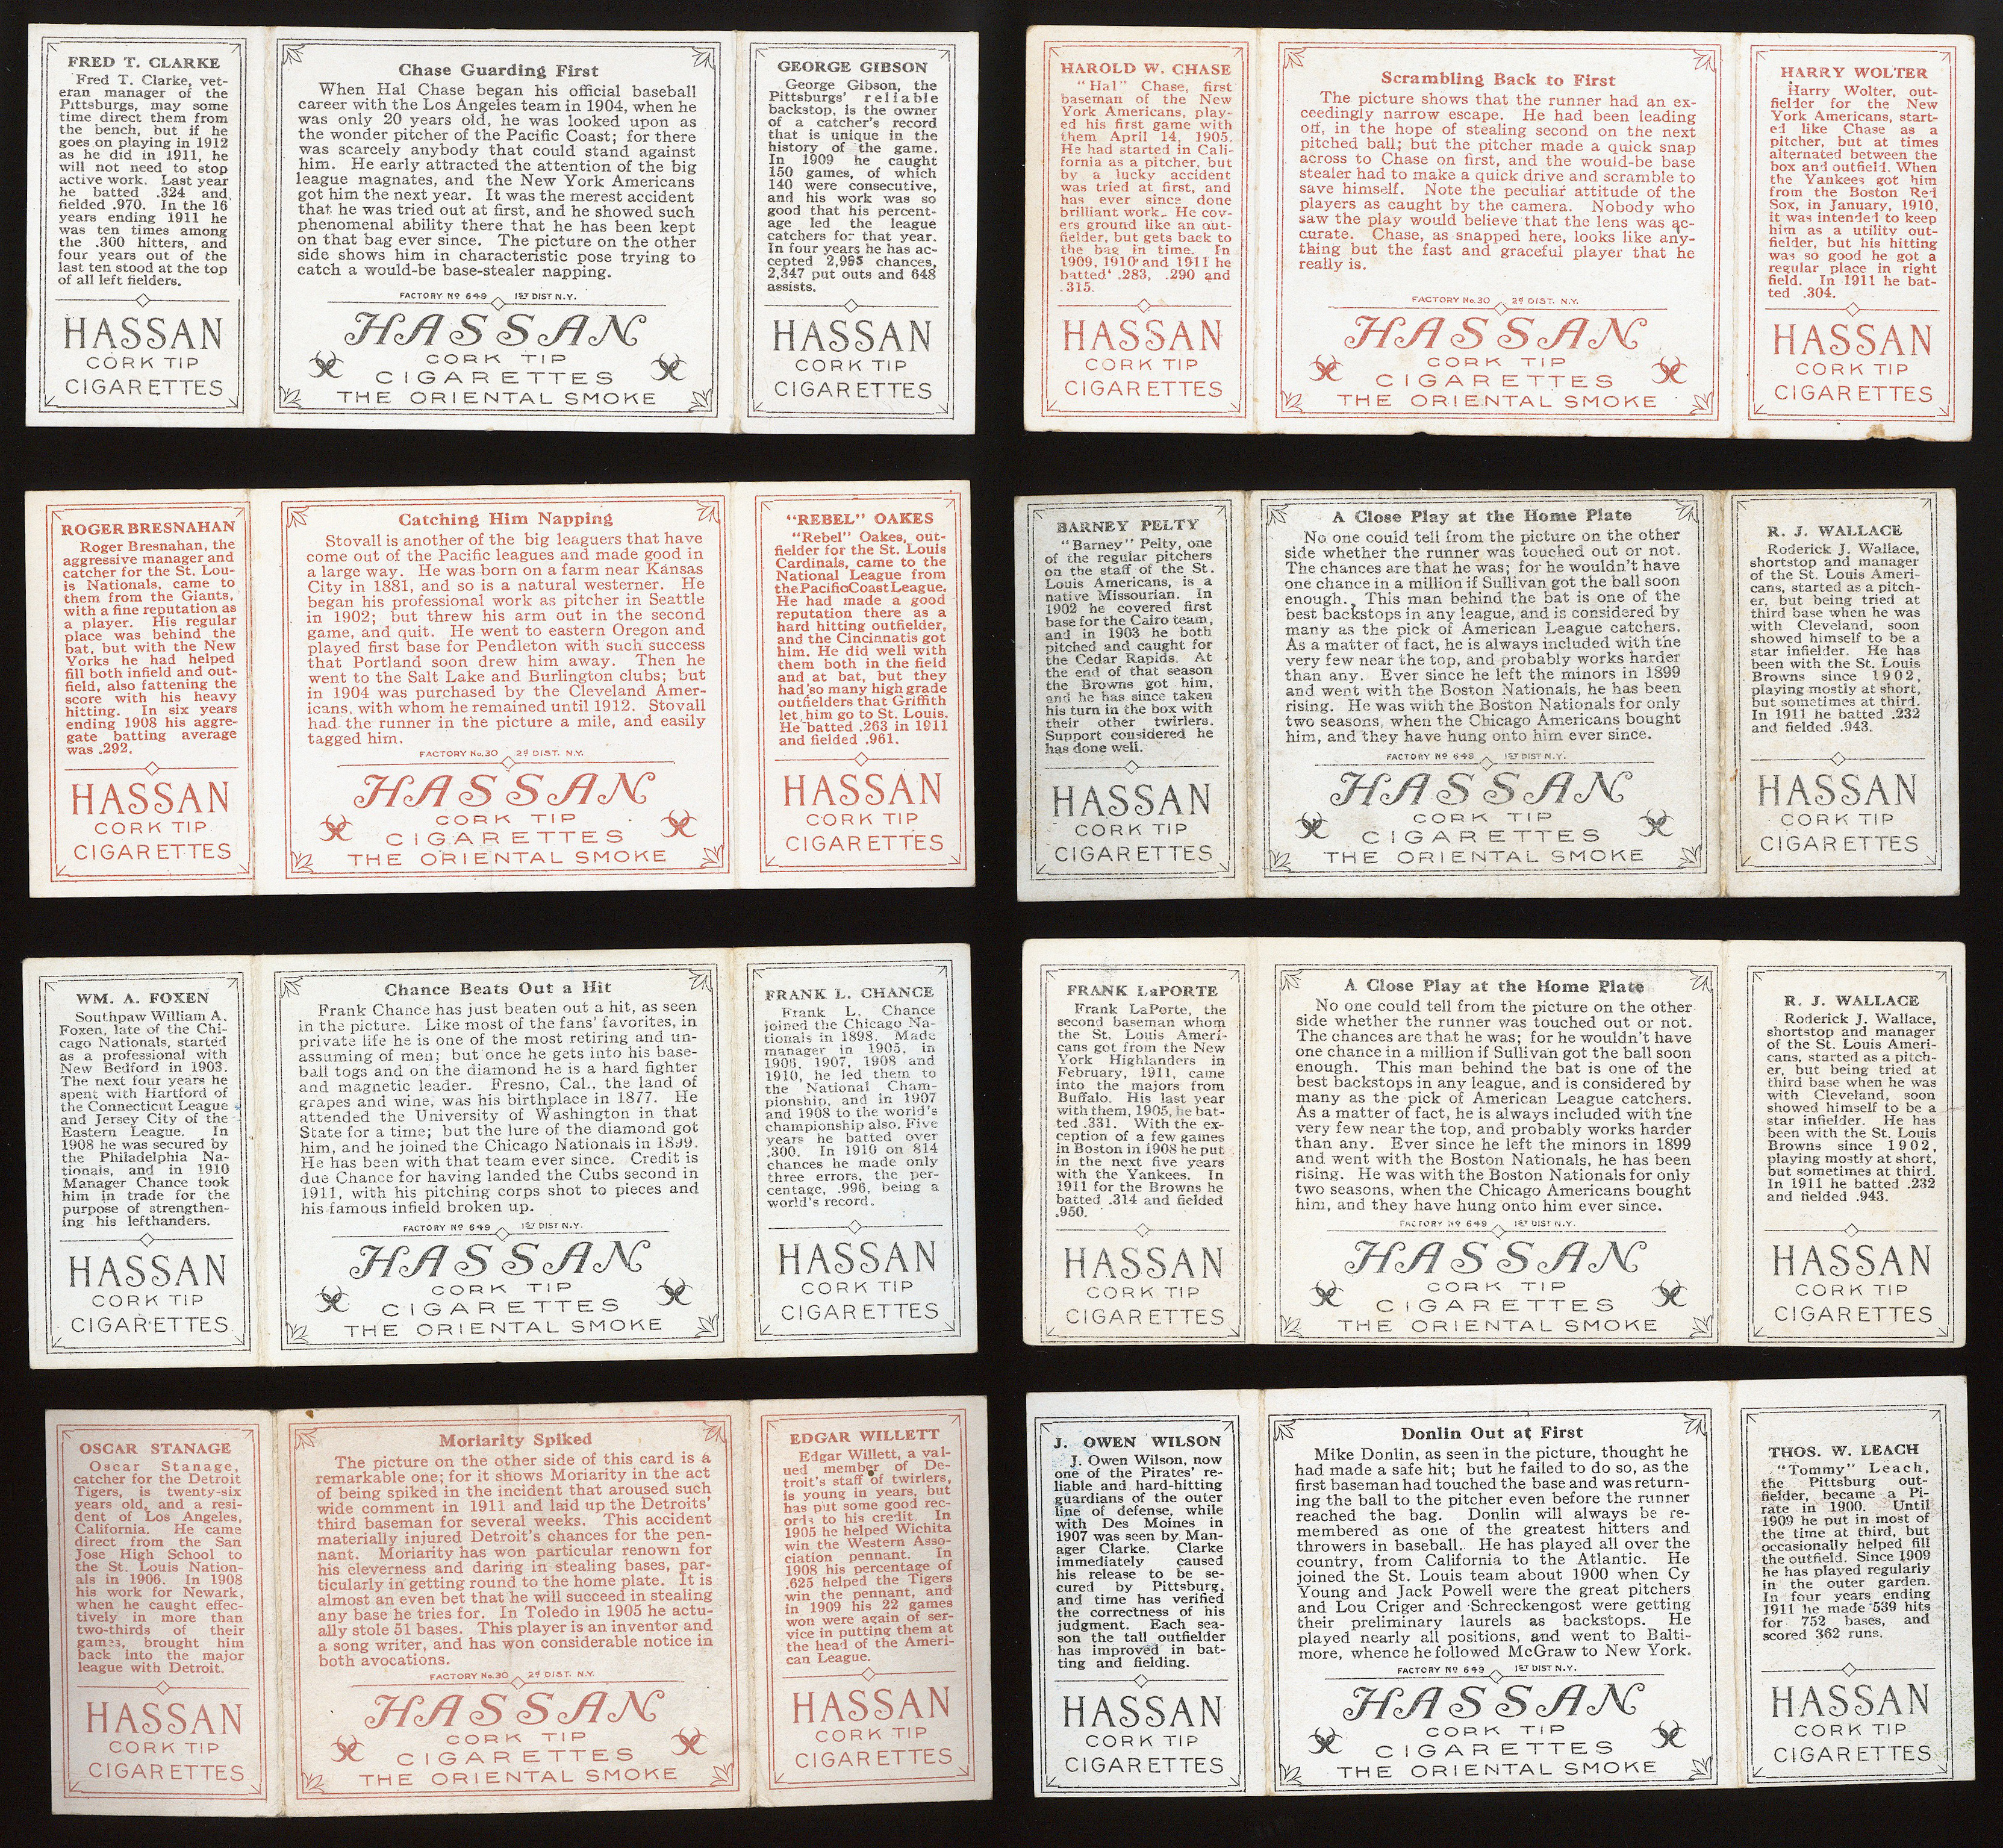 FRED T. CLARKE
Fred T. Clarke, vet-
eran manager of the
Pittsburgs, may some
time direct them from
the bench, but if he
goes on playing in 1912
as he did in 1911, he
will not need to stop
active work. Last year
he batted .324 and
fielded .970. In the 16
years ending 1911 he
was ten times among
the .300 hitters, and
four years out of the
last ten stood at the top
of all left fielders.
HASSAN
CORK TIP
CIGARETTES
Chase Guarding First
When Hal Chase began his official baseball
career with the Los Angeles team in 1904, when he
was only 20 years old, he was looked upon as
the wonder pitcher of the Pacific Coast; for there
was scarcely anybody that could stand against
him. He early attracted the attention of the big
league magnates, and the New York Americans
got him the next year. It was the merest accident
that he was tried out at first, and he showed such
phenomenal ability there that he has been kept
on that bag ever since. The picture on the other
side shows him in characteristic pose trying to
catch a would-be base-stealer napping.
FACTORY Nº 649 1ST DIST N.Y.
HASSAN
CORK TIP
CIGARETTES
THE ORIENTAL SMOKE
GEORGE GIBSON
George Gibson, the
Pittsburgs' reliable
backstop, is the owner
of a catcher's record
that is unique in the
history of the game.
In 1909 he caught
150 games, of which
140 were consecutive,
and his work was so
good that his percent-
age led the league
catchers for that year.
In four years he has ac-
cepted 2,995 chances,
2,347 put outs and 648
assists.
HASSAN
CORK TIP
CIGARETTES
HAROLD W. CHASE
"Hal" Chase, first
baseman of the New
York Americans, play-
ed his first game with
them April 14, 1905.
He had started in Cali-
fornia as a pitcher, but
by a lucky accident
was tried at first, and
has ever since done
brilliant work. He cov-
ers ground like an out-
fielder, but gets back to
the bag in time. In
1909, 1910 and 1911 he
batted .283, .290 and
.315.
HASSAN
CORK TIP
CIGARETTES
Scrambling Back to First
The picture shows that the runner had an ex-
ceedingly narrow escape. He had been leading
off, in the hope of stealing second on the next
pitched ball; but the pitcher made a quick snap
across to Chase on first, and the would-be base
stealer had to make a quick drive and scramble to
save himself. Note the peculiar attitude of the
players as caught by the camera. Nobody who
saw the play would believe that the lens was ac-
curate. Chase, as snapped here, looks like any-
thing but the fast and graceful player that he
really is.
FACTORY No. 30 2d DIST. N.Y.
HASSAN
CORK TIP
CIGARETTES
THE ORIENTAL SMOKE
HARRY WOLTER
Harry Wolter, out-
fielder for the New
York Americans, start-
ed like Chase as a
pitcher, but at times
alternated between the
box and outfield. When
the Yankees got him
from the Boston Red
Sox, in January, 1910,
it was intended to keep
him as a utility out-
fielder, but his hitting
was so good he got a
regular place in right
field. In 1911 he bat-
ted .304.
HASSAN
CORK TIP
CIGARETTES
ROGER BRESNAHAN
Roger Bresnahan, the
aggressive manager and
catcher for the St. Lou-
is Nationals, came to
them from the Giants,
with a fine reputation as
a player. His regular
place was behind the
bat, but with the New
Yorks he had helped
fill both infield and out-
field, also fattening the
score with his heavy
hitting. In six years
ending 1908 his aggre-
gate batting average
was .292.
HASSAN
CORK TIP
CIGARETTES
Catching Him Napping
Stovall is another of the big leaguers that have
come out of the Pacific leagues and made good in
a large way. He was born on a farm near Kansas
City in 1881, and so is a natural westerner. He
began his professional work as pitcher in Seattle
in 1902; but threw his arm out in the second
game, and quit. He went to eastern Oregon and
played first base for Pendleton with such success
that Portland soon drew him away. Then he
went to the Salt Lake and Burlington clubs; but
in 1904 was purchased by the Cleveland Amer-
icans, with whom he remained until 1912. Stovall
had the runner in the picture a mile, and easily
tagged him.
FACTORY No. 30 2d DIST. N.Y.
HASSAN
CORK TIP
CIGARETTES
THE ORIENTAL SMOKE
"REBEL" OAKES
"Rebel" Oakes, out-
fielder for the St. Louis
Cardinals, came to the
National League from
the Pacific Coast League.
He had made a good
reputation there as a
hard hitting outfielder,
and the Cincinnatis got
him. He did well with
them both in the field
and at bat, but they
had so many high grade
outfielders that Griffith
let him go to St. Louis.
He batted .263 in 1911
and fielded .961.
HASSAN
CORK TIP
CIGARETTES
BARNEY PELTY
"Barney" Pelty, one
of the regular pitchers
on the staff of the St.
Louis Americans, is a
native Missourian. In
1902 he covered first
base for the Cairo team,
and in 1903 he both
pitched and caught for
the Cedar Rapids. At
the end of that season
the Browns got him,
and he has since taken
his turn in the box with
their other twirlers.
Support considered he
has done well.
HASSAN
CORK TIP
CIGARETTES
A Close Play at the Home Plate
No one could tell from the picture on the other
side whether the runner was touched out or not.
The chances are that he was; for he wouldn't have
one chance in a million if Sullivan got the ball soon
enough. This man behind the bat is one of the
best backstops in any league, and is considered by
many as the pick of American League catchers.
As a matter of fact, he is always included with the
very few near the top, and probably works harder
than any. Ever since he left the minors in 1899
and went with the Boston Nationals, he has been
rising. He was with the Boston Nationals for only
two seasons, when the Chicago Americans bought
him, and they have hung onto him ever since.
FACTORY Nº 649 1ST DIST N.Y.
HASSAN
CORK TIP
CIGARETTES
THE ORIENTAL SMOKE
R. J. WALLACE
Roderick J. Wallace,
shortstop and manager
of the St. Louis Ameri-
cans, started as a pitch-
er, but being tried at
third base when he was
with Cleveland, soon
showed himself to be a
star infielder. He has
been with the St. Louis
Browns since 1902,
playing mostly at short,
but sometimes at third.
In 1911 he batted .232
and fielded .943.
HASSAN
CORK TIP
CIGARETTES
WM. A. FOXEN
Southpaw William A.
Foxen, late of the Chi-
cago Nationals, started
as a professional with
New Bedford in 1903.
The next four years he
spent with Hartford of
the Connecticut League
and Jersey City of the
Eastern League. In
1908 he was secured by
the Philadelphia Na-
tionals, and in 1910
Manager Chance took
him in trade for the
purpose of strengthen-
ing his lefthanders.
HASSAN
CORK TIP
CIGARETTES
Chance Beats Out a Hit
Frank Chance has just beaten out a hit, as seen
in the picture. Like most of the fans' favorites, in
private life he is one of the most retiring and un-
assuming of men; but once he gets into his base-
ball togs and on the diamond he is a hard fighter
and magnetic leader. Fresno, Cal., the land of
grapes and wine, was his birthplace in 1877. He
attended the University of Washington in that
State for a time; but the lure of the diamond got
him, and he joined the Chicago Nationals in 1899.
He has been with that team ever since. Credit is
due Chance for having landed the Cubs second in
1911, with his pitching corps shot to pieces and
his famous infield broken up.
FACTORY Nº 649 1ST DIST N.Y.
HASSAN
CORK TIP
CIGARETTES
THE ORIENTAL SMOKE
FRANK L. CHANCE
Frank L. Chance
joined the Chicago Na-
tionals in 1898. Made
manager in 1905, in
1906, 1907, 1908 and
1910, he led them to
the National Cham-
pionship, and in 1907
and 1908 to the world's
championship also. Five
years he batted over
.300. In 1910 on 814
chances he made only
three errors, the per-
centage, .996, being a
world's record.
HASSAN
CORK TIP
CIGARETTES
FRANK LaPORTE
Frank LaPorte, the
second baseman whom
the St. Louis Ameri-
cans got from the New
York Highlanders in
February, 1911, came
into the majors from
Buffalo. His last year
with them, 1905, he bat-
ted .331. With the ex-
ception of a few games
in Boston in 1908 he put
in the next five years
with the Yankees. In
1911 for the Browns he
batted .314 and fielded
.950.
HASSAN
CORK TIP
CIGARETTES
A Close Play at the Home Plate
No one could tell from the picture on the other
side whether the runner was touched out or not.
The chances are that he was; for he wouldn't have
one chance in a million if Sullivan got the ball soon
enough. This man behind the bat is one of the
best backstops in any league, and is considered by
many as the pick of American League catchers.
As a matter of fact, he is always included with the
very few near the top, and probably works harder
than any. Ever since he left the minors in 1899
and went with the Boston Nationals, he has been
rising. He was with the Boston Nationals for only
two seasons, when the Chicago Americans bought
him, and they have hung onto him ever since.
FACTORY Nº 649 1ST DIST N.Y.
HASSAN
CORK TIP
CIGARETTES
THE ORIENTAL SMOKE
R. J. WALLACE
Roderick J. Wallace,
shortstop and manager
of the St. Louis Ameri-
cans, started as a pitch-
er, but being tried at
third base when he was
with Cleveland, soon
showed himself to be a
star infielder. He has
been with the St. Louis
Browns since 1902,
playing mostly at short,
but sometimes at third.
In 1911 he batted .232
and fielded .943.
HASSAN
CORK TIP
CIGARETTES
OSCAR STANAGE
Oscar Stanage,
catcher for the Detroit
Tigers, is twenty-six
years old, and a resi-
dent of Los Angeles,
California. He came
direct from the San
Jose High School to
the St. Louis Nation-
als in 1906. In 1908
his work for Newark,
when he caught effec-
tively in more than
two-thirds of their
games, brought him
back into the major
league with Detroit.
HASSAN
CORK TIP
CIGARETTES
Moriarity Spiked
The picture on the other side of this card is a
remarkable one; for it shows Moriarity in the act
of being spiked in the incident that aroused such
wide comment in 1911 and laid up the Detroits'
third baseman for several weeks. This accident
materially injured Detroit's chances for the pen-
nant. Moriarity has won particular renown for
his cleverness and daring in stealing bases, par-
ticularly in getting round to the home plate. It is
almost an even bet that he will succeed in stealing
any base he tries for. In Toledo in 1905 he actu-
ally stole 51 bases. This player is an inventor and
a song writer, and has won considerable notice in
both avocations.
FACTORY No. 30 2d DIST. N.Y.
HASSAN
CORK TIP
CIGARETTES
THE ORIENTAL SMOKE
EDGAR WILLETT
Edgar Willett, a val-
ued member of De-
troit's staff of twirlers,
is young in years, but
has put some good rec-
ords to his credit. In
1905 he helped Wichita
win the Western Asso-
ciation pennant. In
1908 his percentage of
.625 helped the Tigers
win the pennant, and
in 1909 his 22 games
won were again of ser-
vice in putting them at
the head of the Ameri-
can League.
HASSAN
CORK TIP
CIGARETTES
J. OWEN WILSON
J. Owen Wilson, now
one of the Pirates' re-
liable and hard-hitting
guardians of the outer
line of defense, while
with Des Moines in
1907 was seen by Man-
ager Clarke. Clarke
immediately caused
his release to be se-
cured by Pittsburg,
and time has verified
the correctness of his
judgment. Each sea-
son the tall outfielder
has improved in bat-
ting and fielding.
HASSAN
CORK TIP
CIGARETTES
Donlin Out at First
Mike Donlin, as seen in the picture, thought he
had made a safe hit; but he failed to do so, as the
first baseman had touched the base and was return-
ing the ball to the pitcher even before the runner
reached the bag. Donlin will always be re-
membered as one of the greatest hitters and
throwers in baseball. He has played all over the
country, from California to the Atlantic. He
joined the St. Louis team about 1900 when Cy
Young and Jack Powell were the great pitchers
and Lou Criger and Schreckengost were getting
their preliminary laurels as backstops. He
played nearly all positions, and went to Balti-
more, whence he followed McGraw to New York.
FACTORY Nº 649 1ST DIST N.Y.
HASSAN
CORK TIP
CIGARETTES
THE ORIENTAL SMOKE
THOS. W. LEACH
"Tommy" Leach,
the Pittsburg out-
fielder, became a Pi-
rate in 1900. Until
1909 he put in most of
the time at third, but
occasionally helped fill
the outfield. Since 1909
he has played regularly
in the outer garden.
In four years ending
1911 he made 539 hits
for 752 bases, and
scored 362 runs.
HASSAN
CORK TIP
CIGARETTES